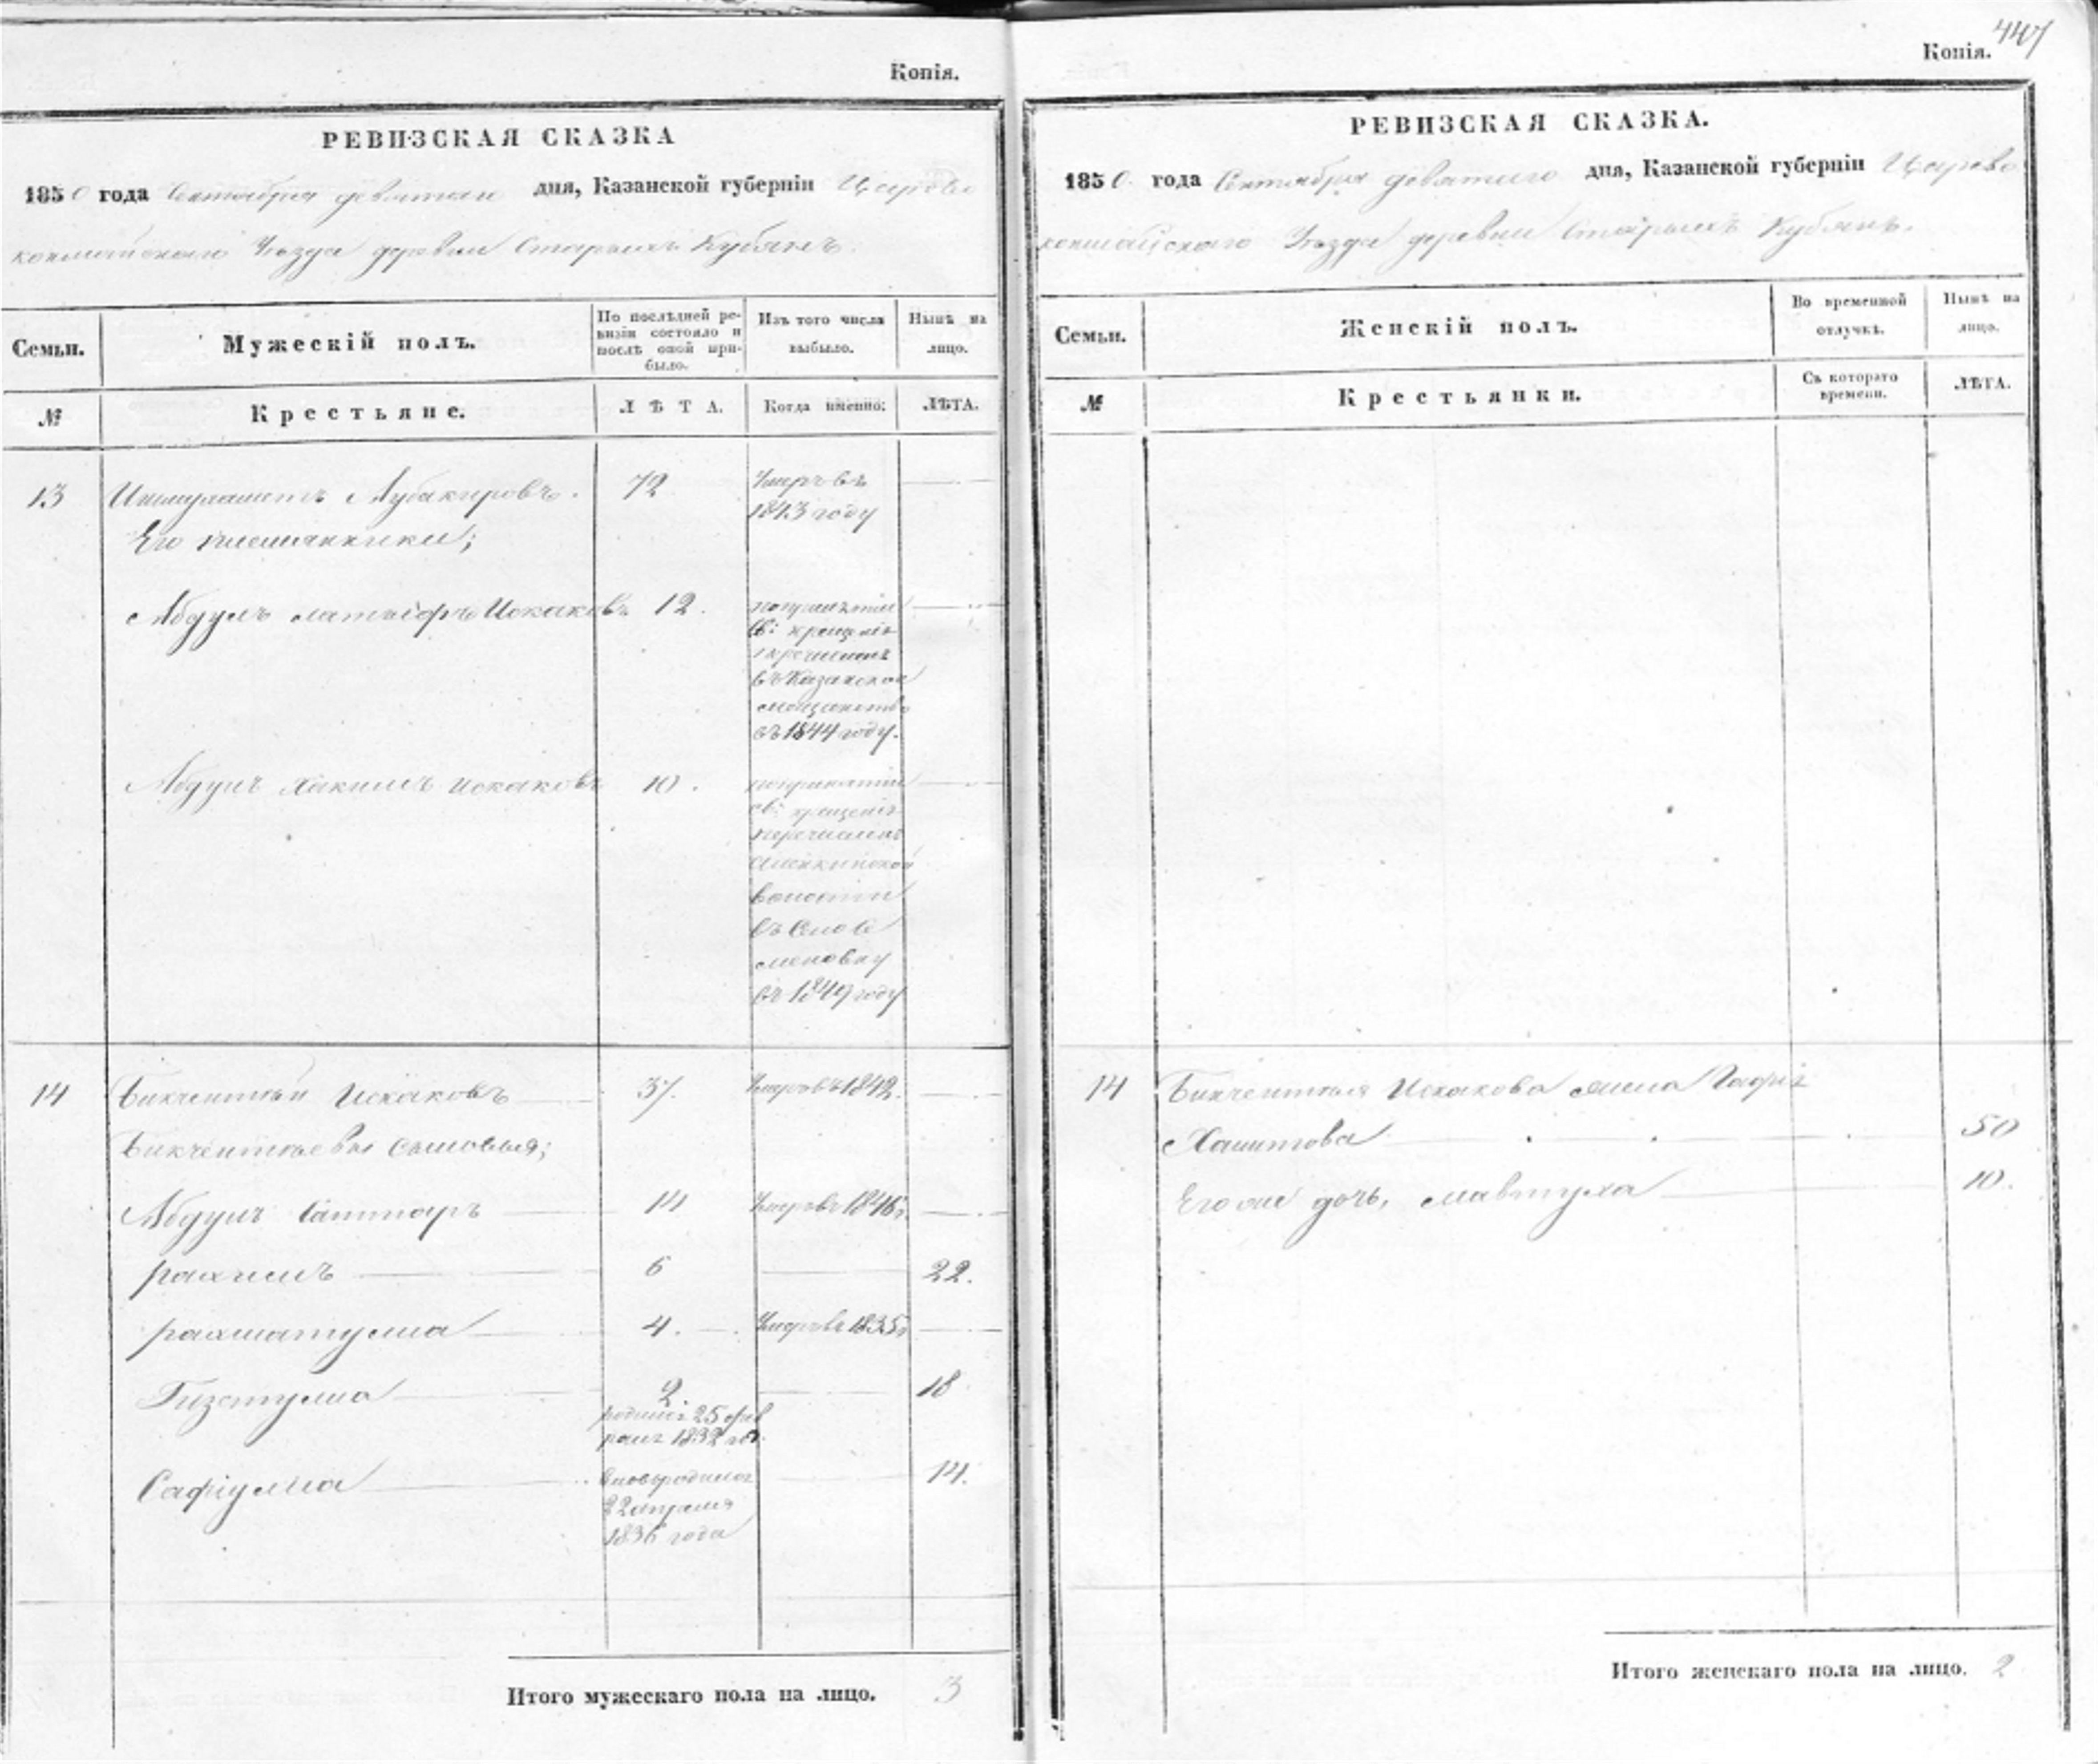 Копія.
РЕВИЗСКАЯ СКАЗКА
1850 года Сентября девятаго дня, Казанской губерніи Царево
кокшайскаго Уѣзда деревни Старыхъ Кубянъ.
Семьи.
Мужескій полъ.
По послѣдней ре-
визіи состояло и
послѣ оной при-
было.
Изъ того числа
выбыло.
Нынѣ на
лицо.
№
Крестьяне.
ЛѢТА.
Когда именно:
ЛѢТА.
13 Ишмухаметъ Абубакировъ. 72 Умеръ въ
1843 году
Его племянники;
Абдулъ латыфъ Искаковъ 12. по принятіи
Св: крещенія
перечисленъ
въ Казанское
мещанство
въ 1844 году.
Абдулъ Хакимъ Искаковъ 10. по принятіи
св: крещенія
перечисленъ
волости
въ
въ 1849 году
14 Бикчентѣй Искаковъ 37. Умеръ въ 1842.
Бикчентѣевы сыновья;
Абдулъ Саттаръ 14 Умеръ въ 1846г.
рахимъ 6 22.
рахматулла 4. Умеръ въ 1835г
Гизетулла 2. 18
родился 25 фев
раля 1832 го.
Сафіулла вновь родился 14.
22 апреля
1836 года
Итого мужескаго пола на лицо. 3
447
Копія.
РЕВИЗСКАЯ СКАЗКА.
1850 года Сентября девятаго дня, Казанской губерніи Царево
кокшайскаго Уѣзда деревни Старыхъ Кубянъ.
Семьи.
Женскій полъ.
Во временной
отлучкѣ.
Нынѣ на
лицо.
№
Крестьянки.
Съ котораго
времени.
ЛѢТА.
14 Бикчентѣя Искакова жена
Хамитова 50
Его же дочь, Мавтуха 10.
Итого женскаго пола на лицо. 2